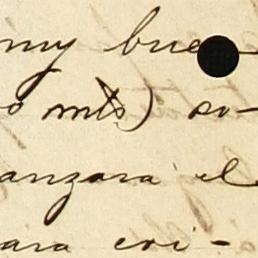 my bue
o mts) so-
anzara el
ara evi-